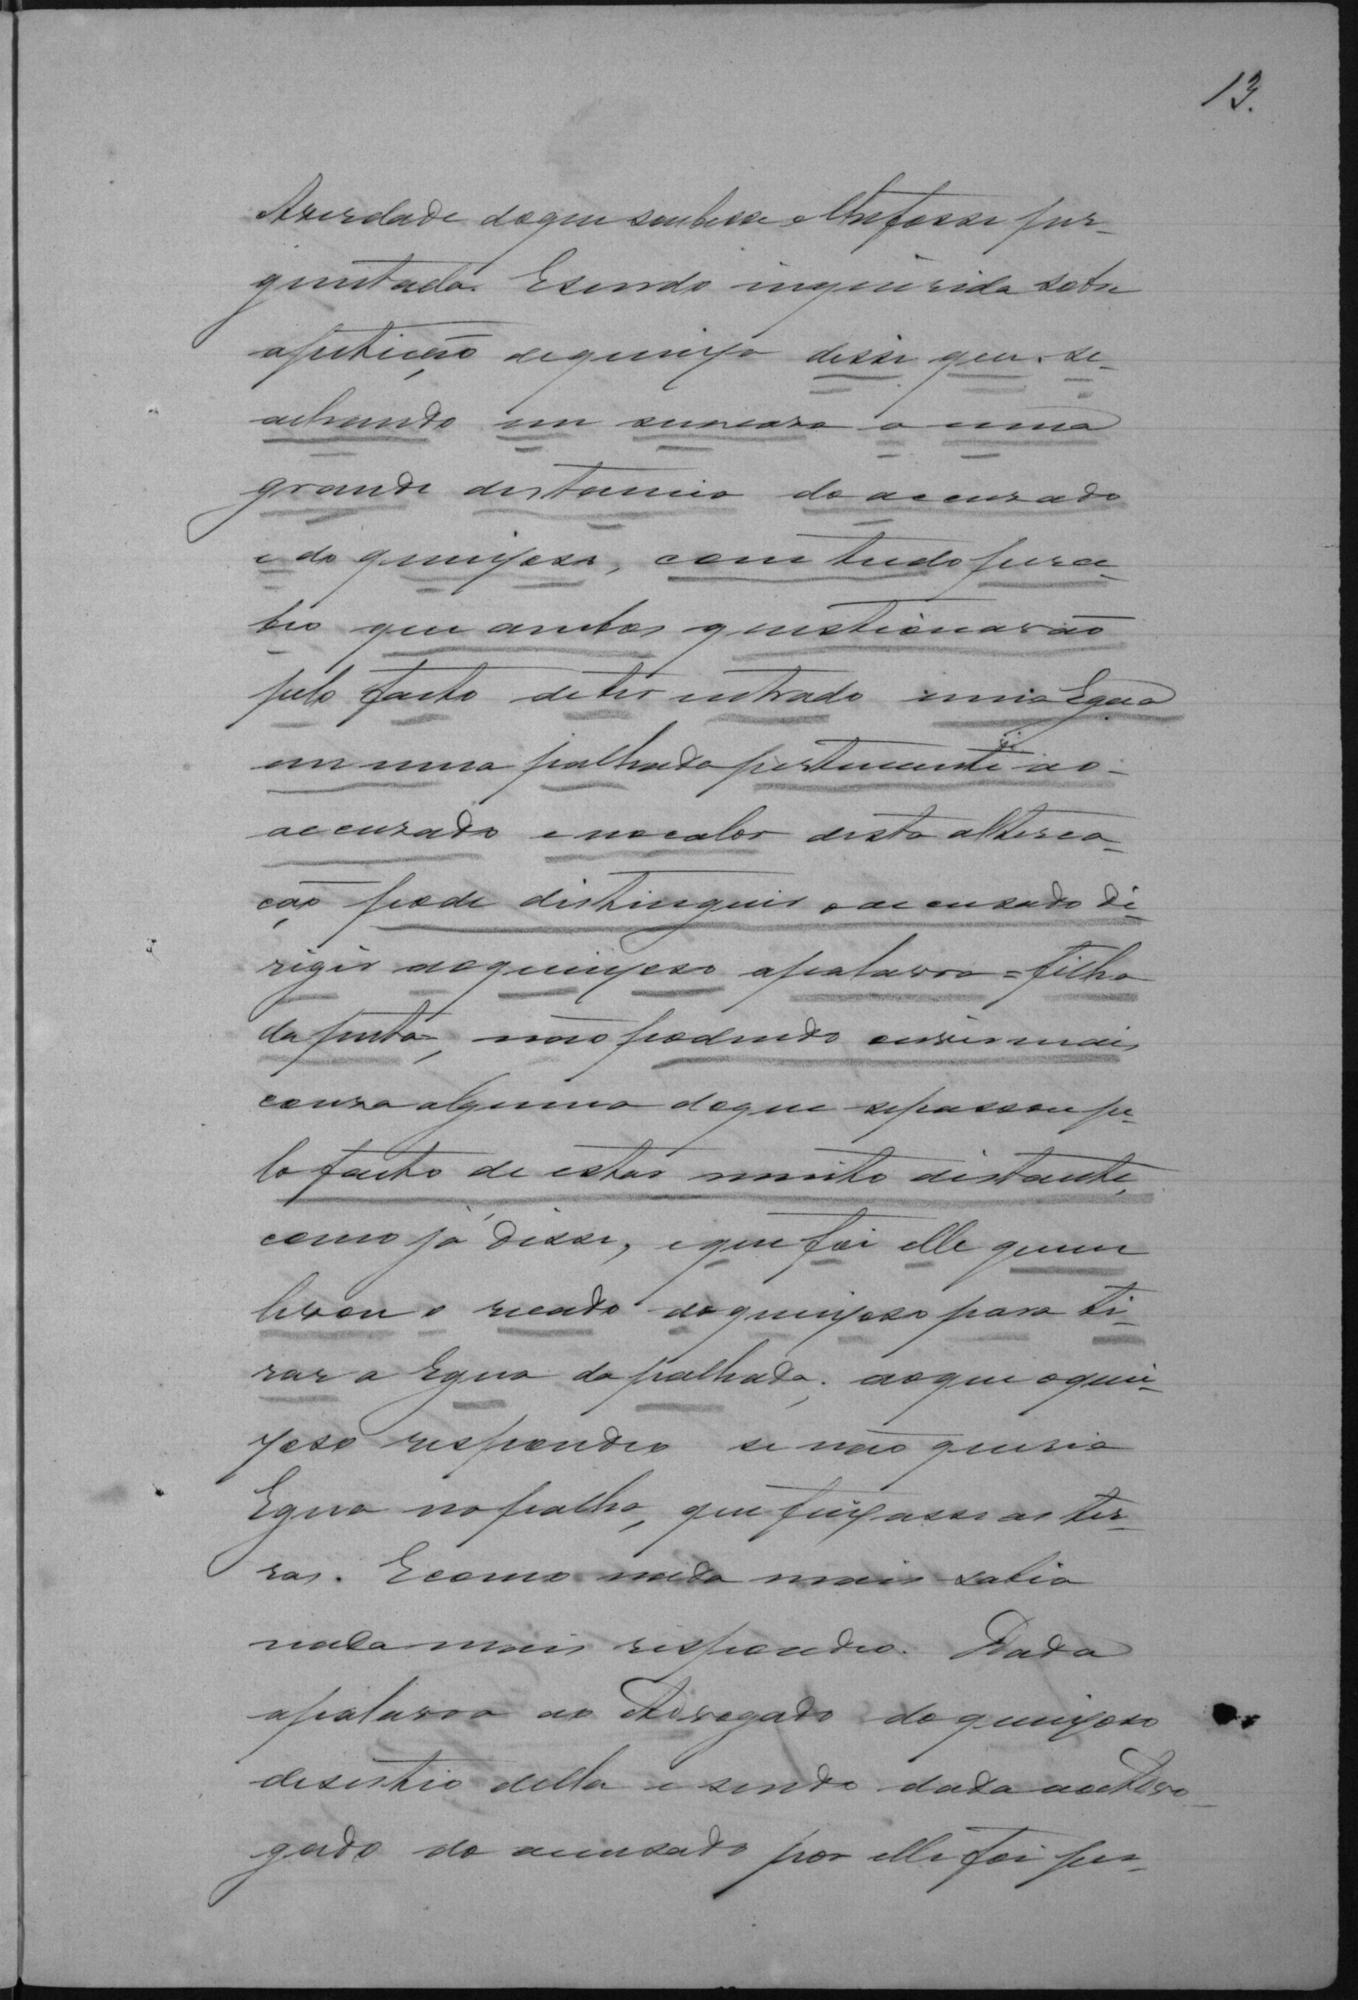 13.
A verdade do que soubesse e lhe fosse per-
guntado. E sendo inquirida sobre
a petição de queixa disse que se
achando em sua casa a uma
grande distancia do accusado
e do queixoso, com tudo perce-
beo que ambos questionarão
pelo facto de ter entrado uma Egua
em uma palhada pertencente ao
accusado e no calor desta alterca-
ção pode distinguir o accusado di-
rigir ao queixoso a palavra = filho
da puta =, não podendo ouvir mais
couza alguma do que se passou pe-
lo facto de estar muito distante,
como já disse, e que foi elle quem
levou o recado do queixoso para ti-
rar a Egua da palhada, ao que o quei-
xoso respondeo se não queria
Egua na palha, que feixasse as ter-
ras. E como nada mais sabia
nada mais respondeo. Dada
a palavra ao Advogado do queixoso
desistio della e sendo dada ao Advo-
gado do accusado por elle foi per-